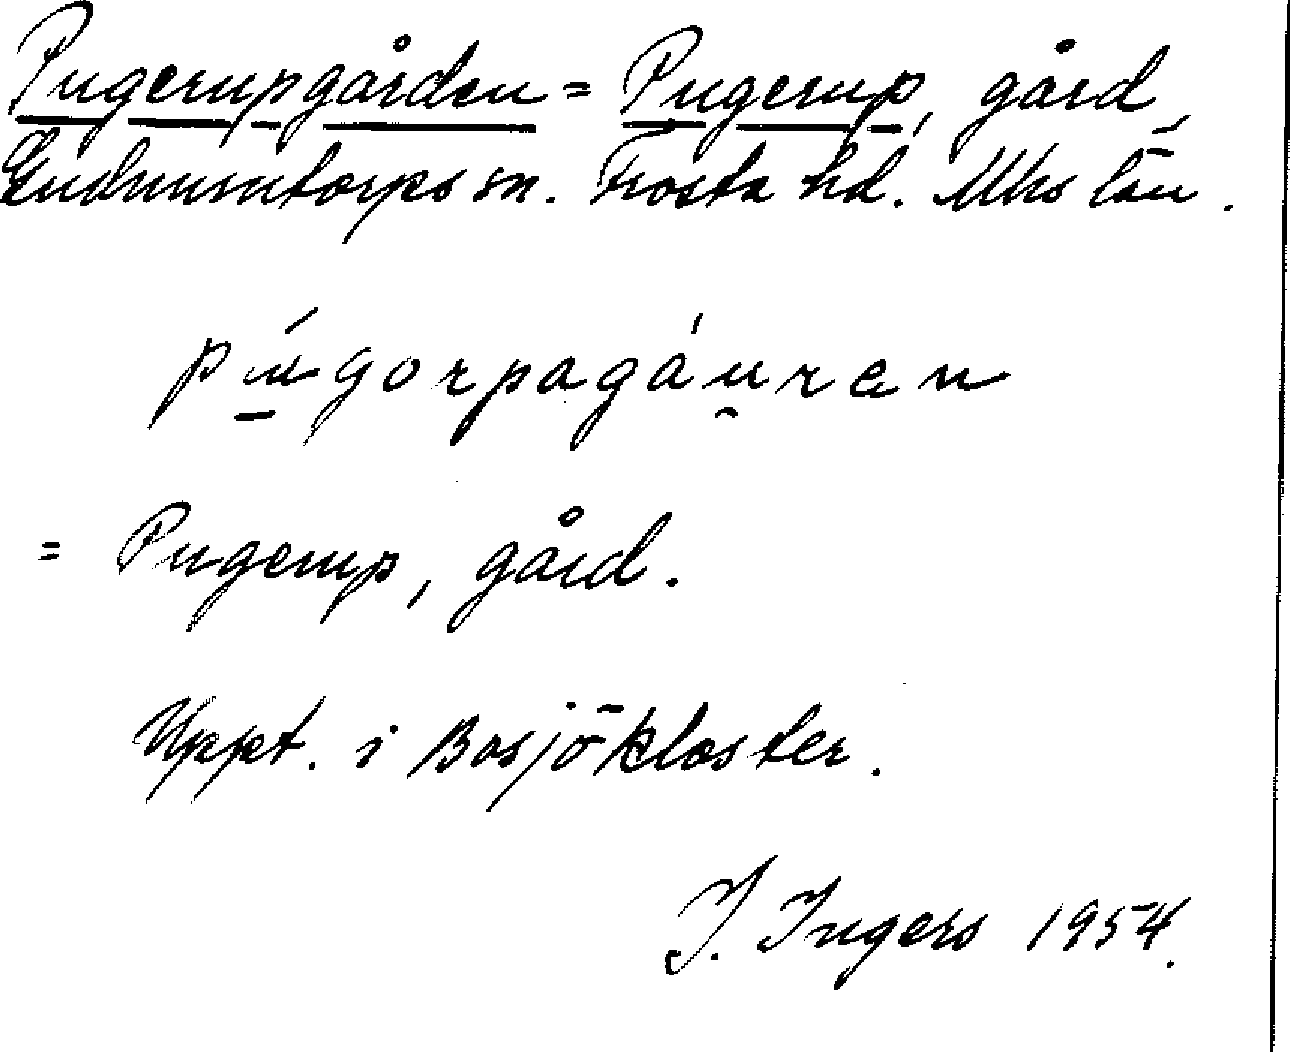 Pugerupgården = Pugerup, gård,
Gudmuntorps sn. Frosta hd. Mhs län.
púgorpagáu̯ren
= Pugerup, gård.
Uppt. i Bosjökloster.
I. Ingers 1954.